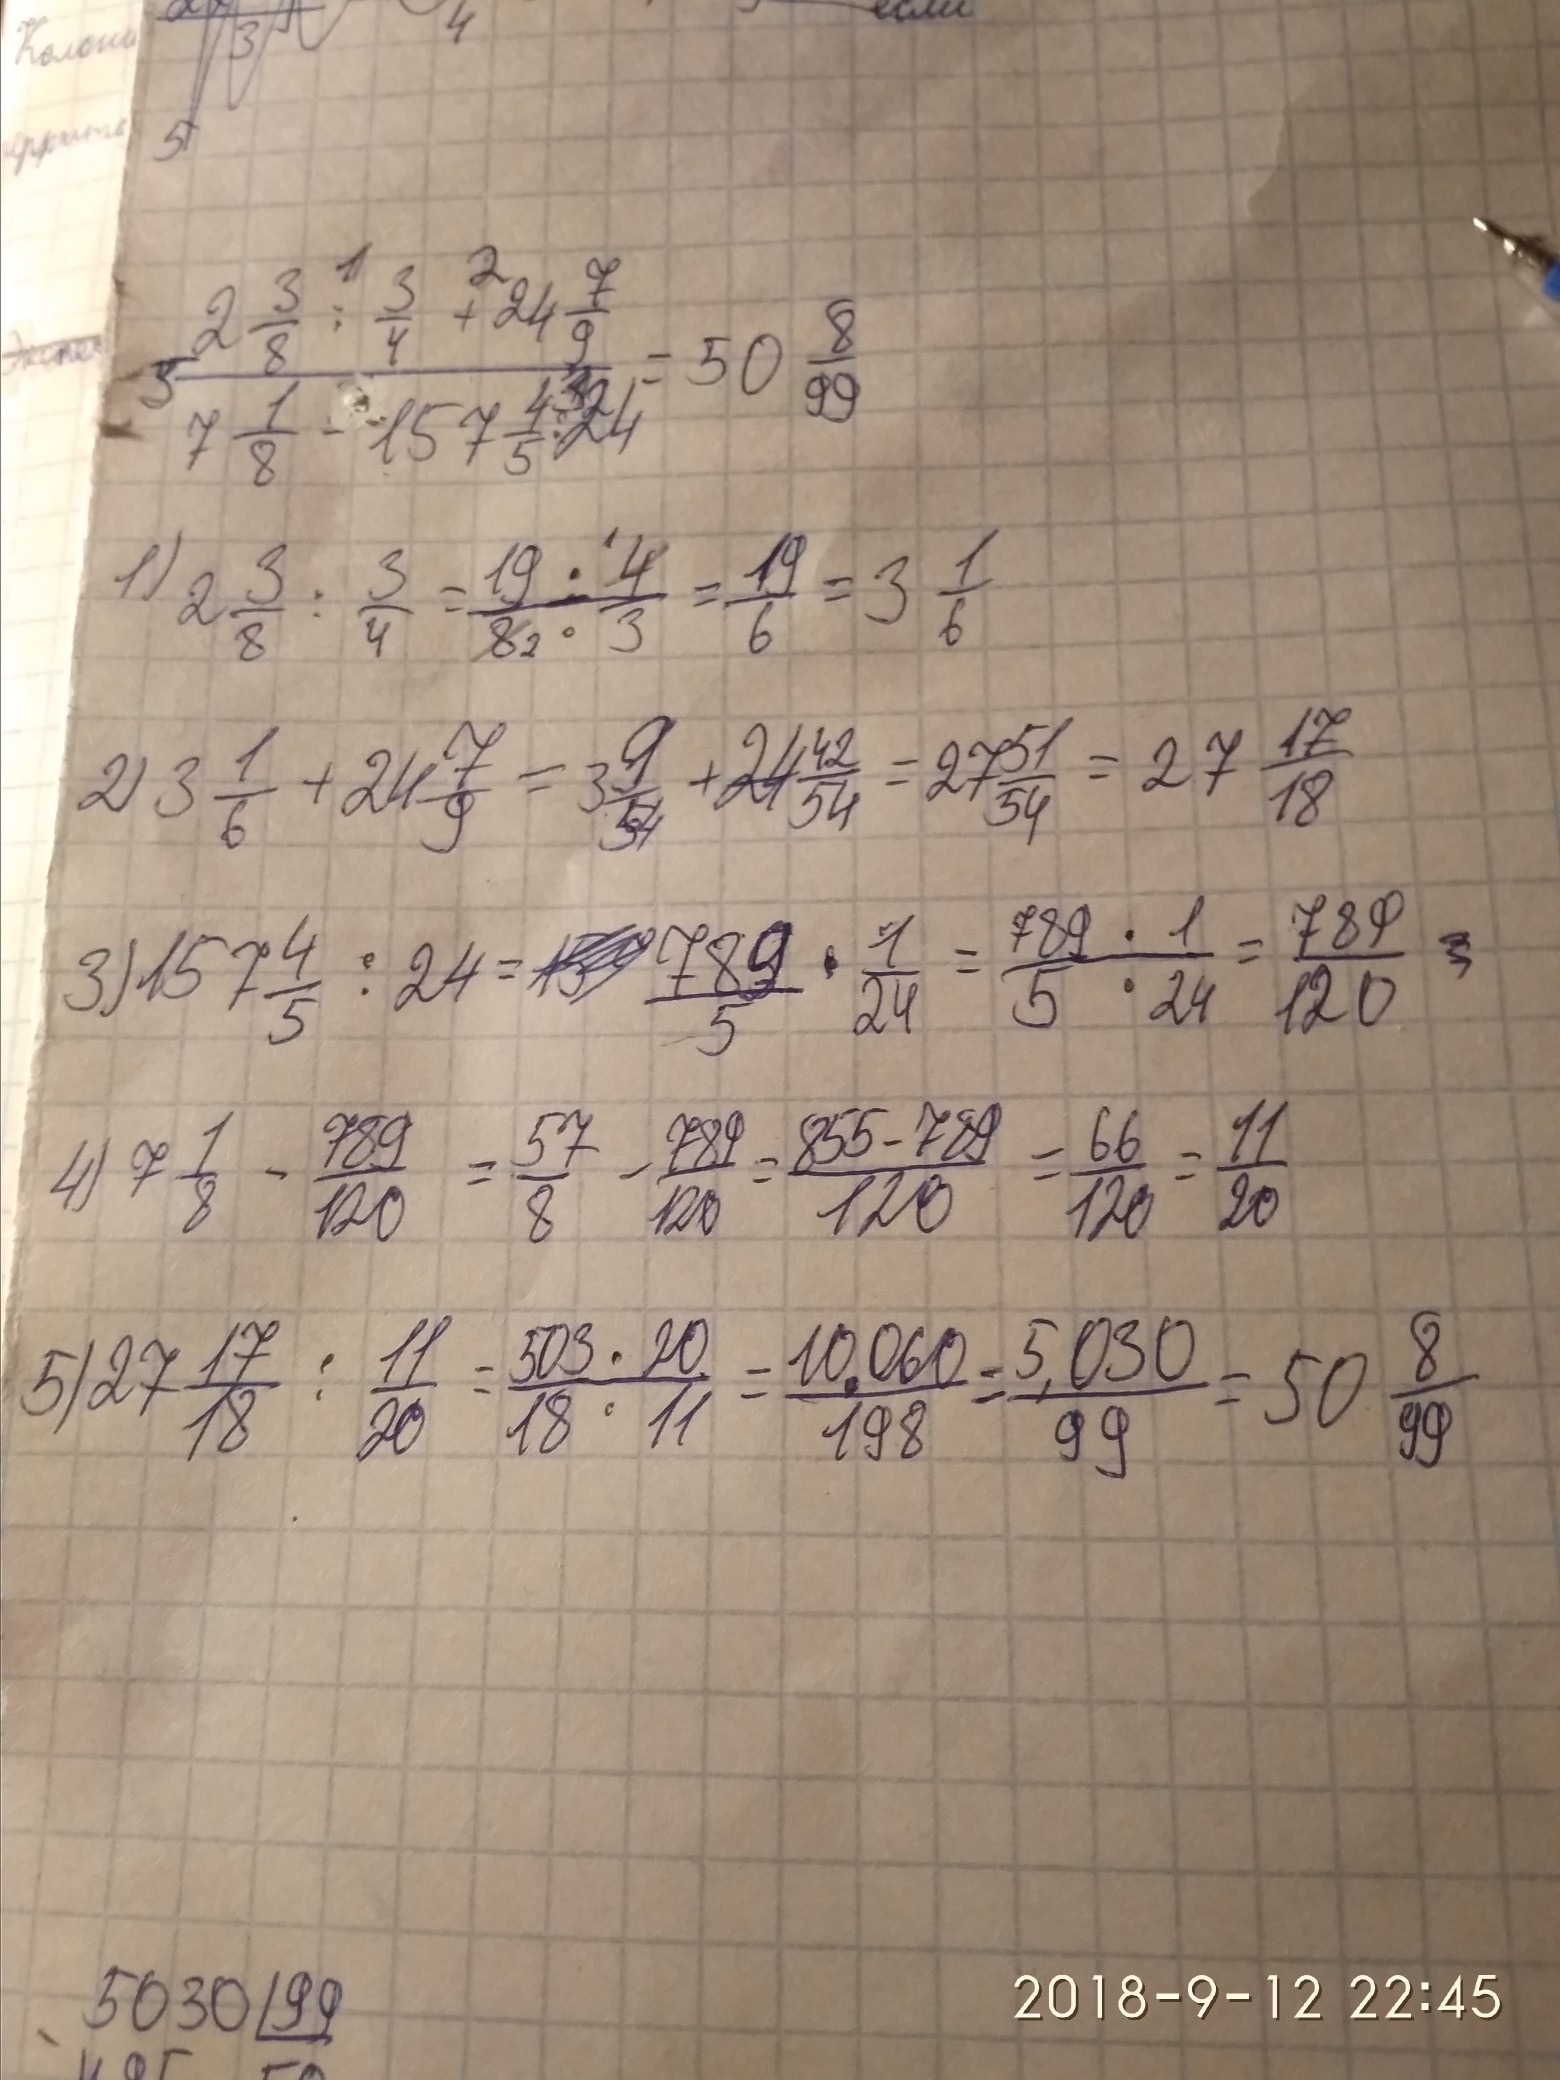 3 4 если
Колон
5
2 3/8 : 3/4 + 24 7/9 / 7 1/8 - 157 4/5 : 24 = 50 8/99
1) 2 3/8 : 3/4 = 19 · 4 / 8 2 · 3 = 19/6 = 3 1/6
2) 3 1/6 + 24 7/9 = 3 9/54 + 24 42/54 = 27 51/54 = 27 17/18
3) 157 4/5 : 24 = 789/5 · 1/24 = 789 · 1 / 5 · 24 = 789/120 =
4) 7 1/8 - 789/120 = 57/8 - 789/120 = 855-789/120 = 66/120 = 11/20
5) 27 17/18 : 11/20 = 503 · 20 / 18 · 11 = 10.060/198 = 5.030/99 = 50 8/99
5030 | 99
495 50
2018-9-12 22:45